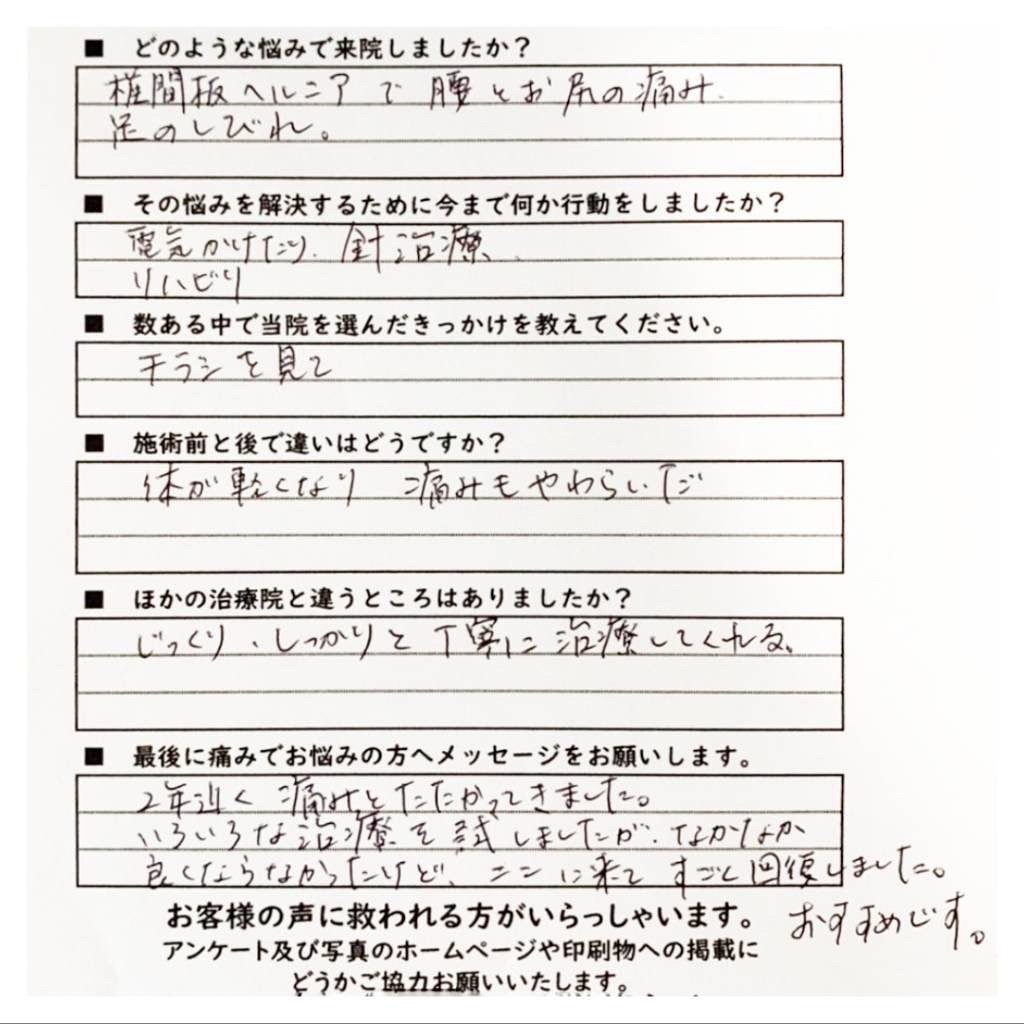 ■ どのような悩みで来院しましたか？
椎間板ヘルニアで 腰とお尻の痛み、
足のしびれ。
■ その悩みを解決するために今まで何か行動をしましたか？
電気かけたり、針治療、
リハビリ
■ 数ある中で当院を選んだきっかけを教えてください。
チラシを見て
■ 施術前と後で違いはどうですか？
体が軽くなり 痛みもやわらいだ
■ ほかの治療院と違うところはありましたか？
じっくり、しっかりと丁寧に治療してくれる。
■ 最後に痛みでお悩みの方へメッセージをお願いします。
2年近く 痛みとたたかってきました。
いろいろな治療を試しましたが、なかなか
良くならなかったけど、ここに来て すごく回復しました。
おすすめです。
お客様の声に救われる方がいらっしゃいます。
アンケート及び写真のホームページや印刷物への掲載に
どうかご協力お願いいたします。